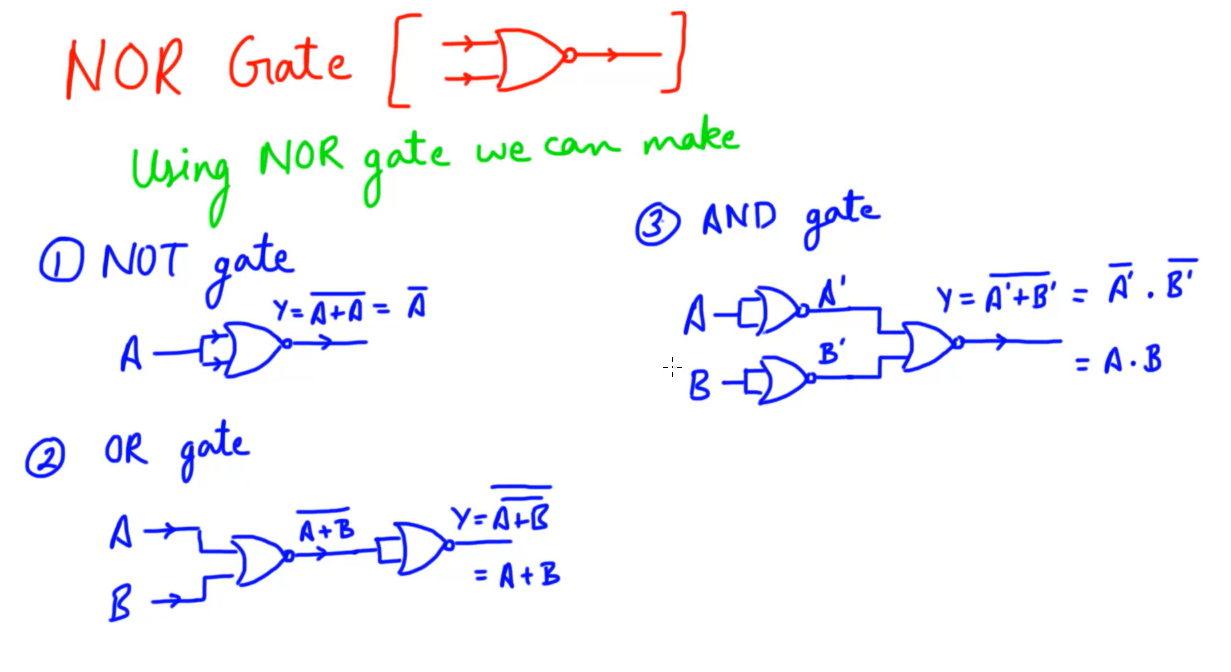 NOR Gate
Using NOR gate we can make
① NOT gate
Y = \overline{A+A} = \overline{A}
A
② OR gate
A
B
\overline{A+B}
Y = \overline{\overline{A+B}}
= A+B
③ AND gate
A
B
A'
B'
Y = \overline{A'+B'} = \overline{A'} . \overline{B'}
= A . B